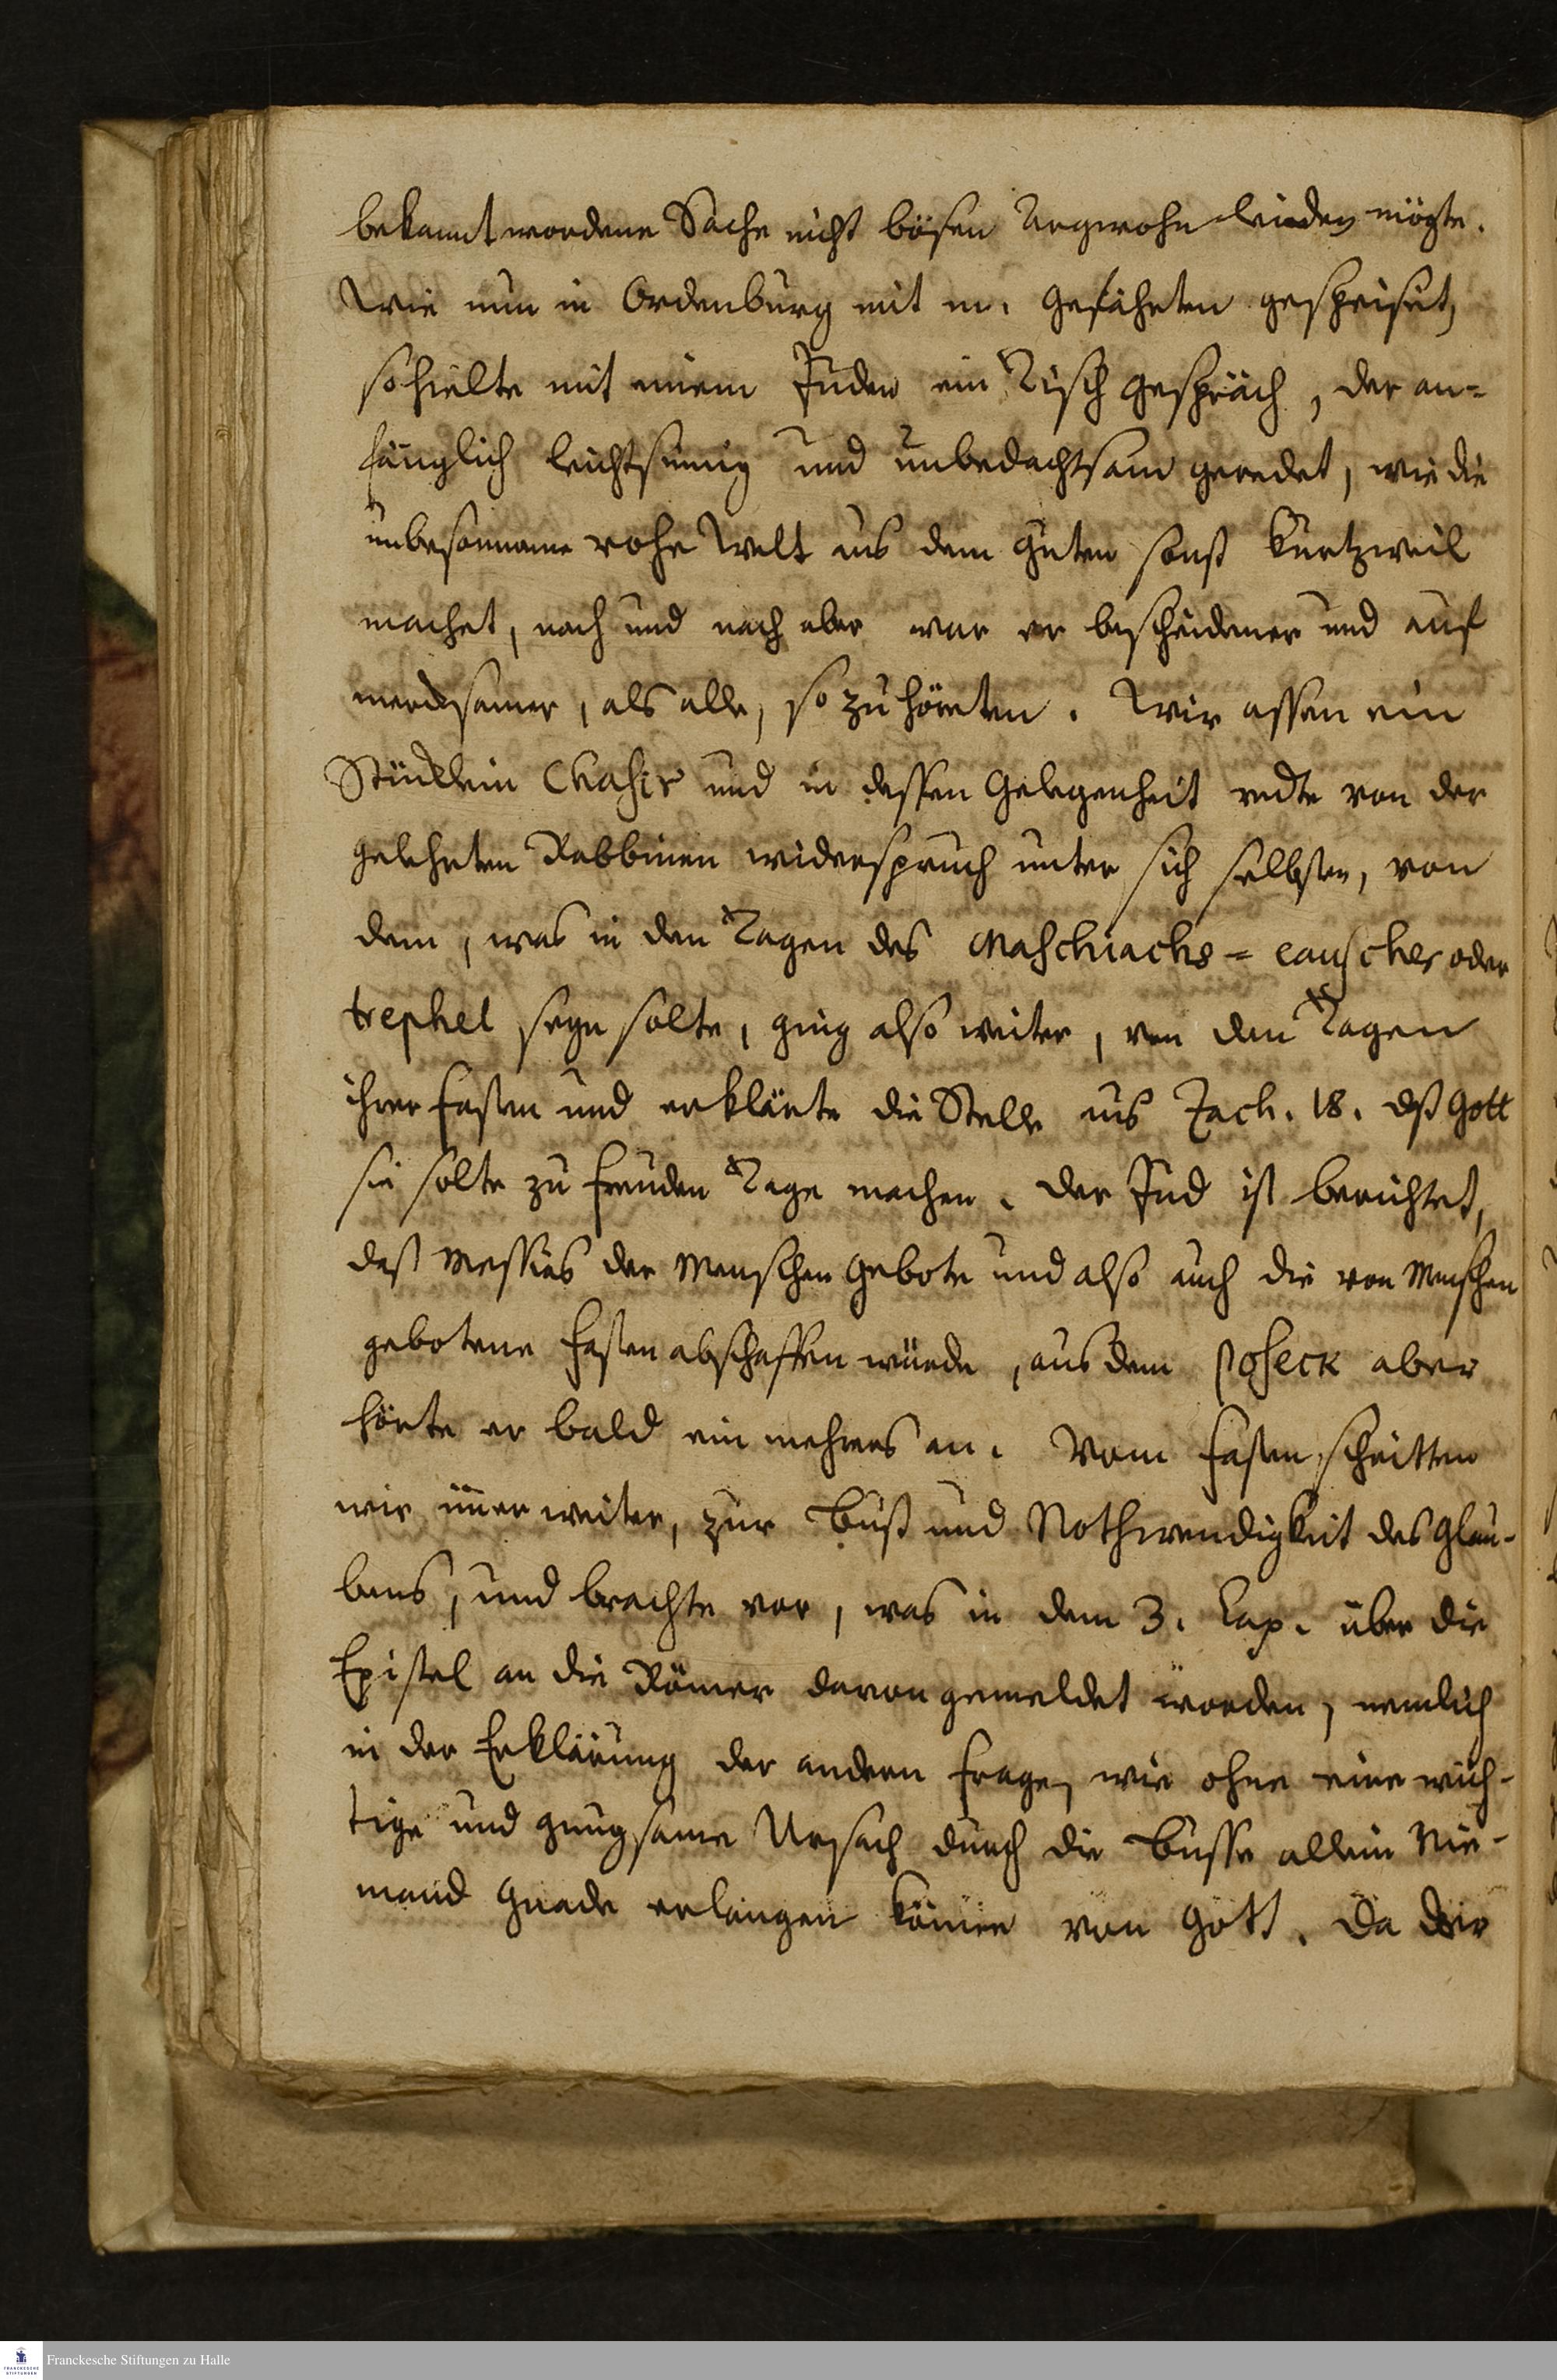 bekannt wordene Sache nicht bösen Argwohn leiden mögte.
Wie nun in Ordenburg mit m. Gefährten gespeiset,
so hielte mit einem Juden ein Tisch gespräch, der an=
fänglich leichtsinnig und unbedachtsam geredet, wie die
unbesonnene rohe Welt aus dem Guten sonst Kurtzweil
machet, nach und nach aber war er bescheidener und auf
mercksamer, als alle, so zuhöreten. Wir assen ein
Stücklein Chasir und in dessen Gelegenheit redte von der
gelehrten Rabbinen widerspruch unter sich selbsten, von
dem, was in den Tagen des Maschiachs = causcher oder
trephel seyn solte, ging also weiter, von den Tagen
ihrer Fasten und erklärte die Stelle aus Zach. 18. dß Gott
sie solte zu Freuden Tage machen. Der Jud ist berichtet,
daß Messias der Menschen Gebote und also auch die von Menschen
gebotene Fasten abschaffen würde, aus dem Poseck aber
hörte er bald ein mehres an. Vom Fasten schritten
wir im̄er weiter, zur Buß und Nothwendigkeit des Glau-
bens, und brachte vor, was in dem 3. Cap. über die
Epistel an die Römer davon gemeldet worden, nemlich
in der Erklärung der andern Frage, wie ohne eine wich-
tige und gnugsame Ursach durch die Busse allein Nie-
mand Gnade erlangen könne von Gott. Da der
Franckesche Stiftungen zu Halle